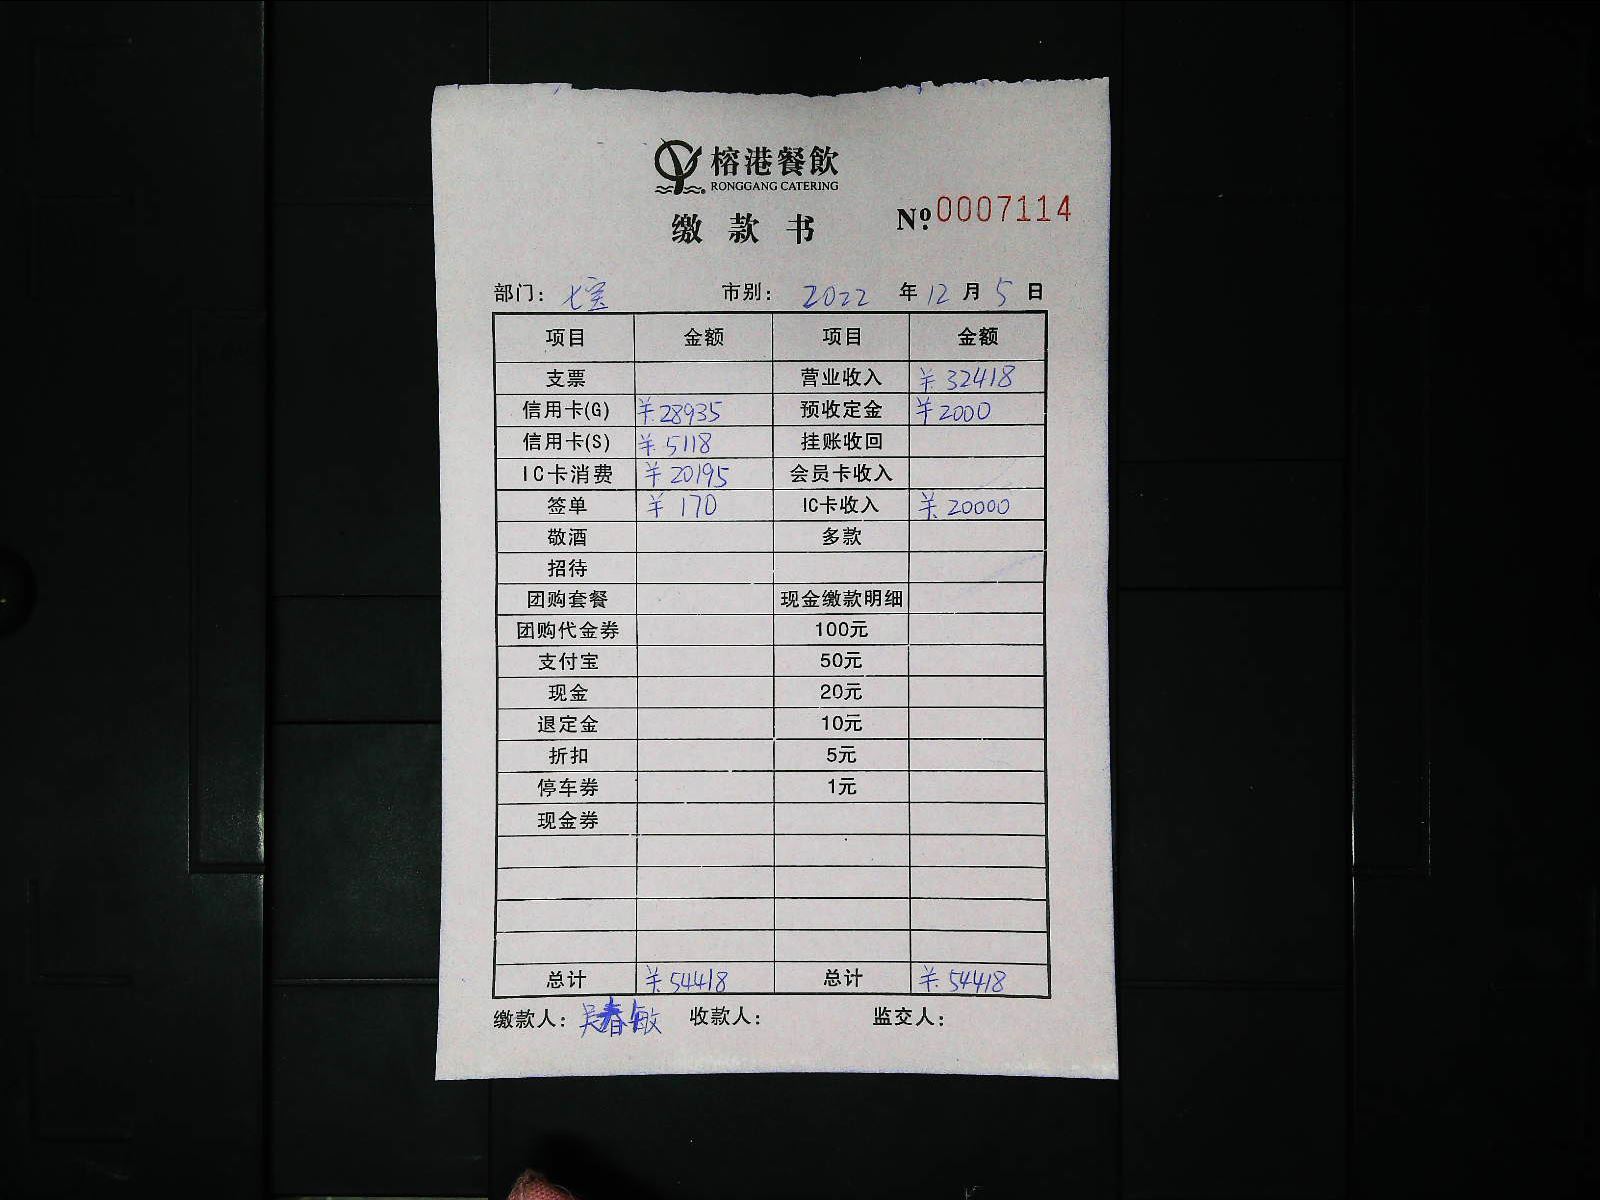 榕港餐飲
RONGGANG CATERING
缴款书 Nº.0007114
部门：七宝 市别：2022 年 12 月 5 日
项目 金额 项目 金额
支票 营业收入 ¥32418
信用卡(G) ¥28935 预收定金 ¥2000
信用卡(S) ¥5118 挂账收回
IC卡消费 ¥20195 会员卡收入
签单 ¥170 IC卡收入 ¥20000
敬酒 多款
招待
团购套餐 现金缴款明细
团购代金券 100元
支付宝 50元
现金 20元
退定金 10元
折扣 5元
停车券 1元
现金券
总计 ¥54418 总计 ¥54418
缴款人：吴春敏 收款人： 监交人：